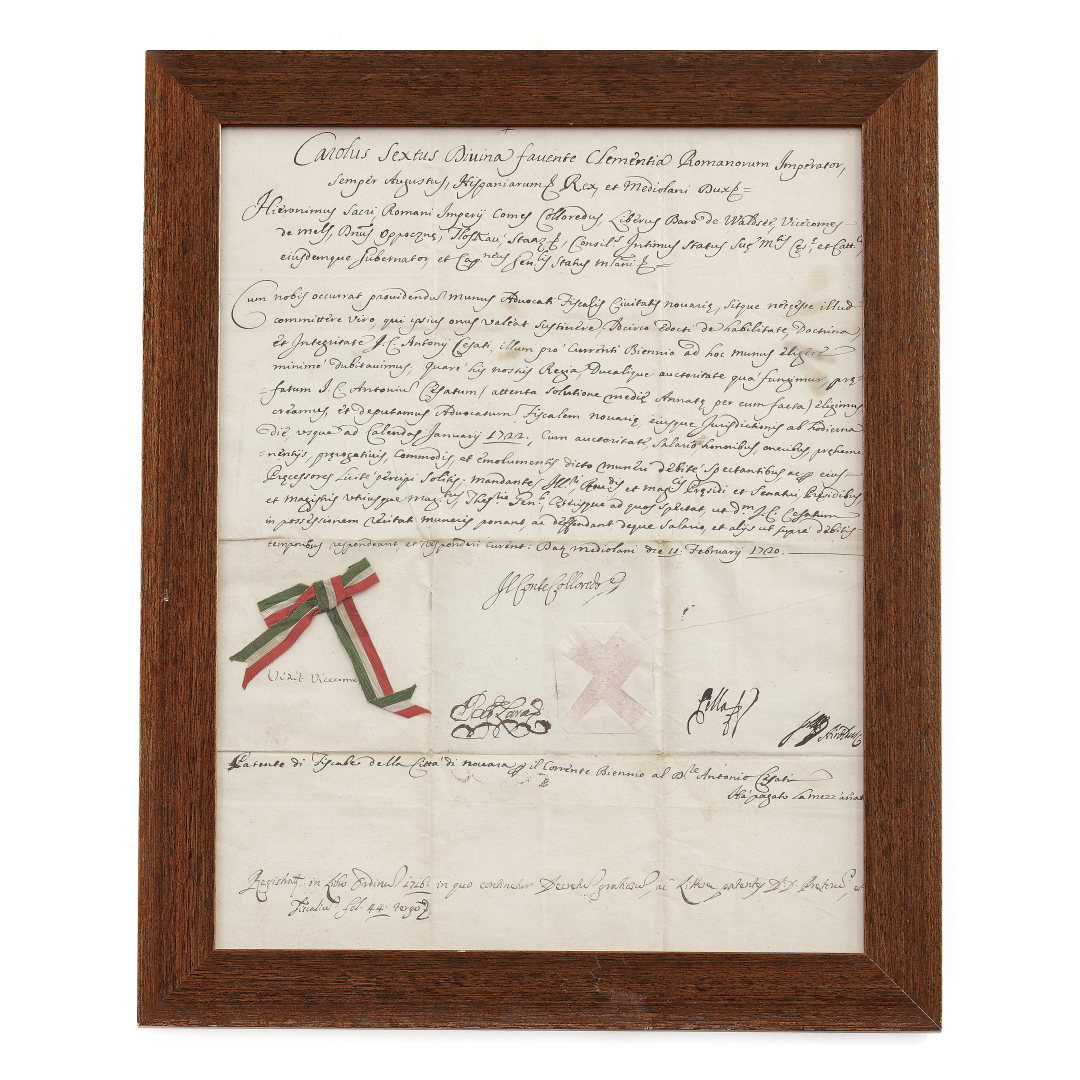 Carolus Sextus Divina favente Clementia Romanorum Imperator,
Semper Augustus, Hispaniarum Rex, et Mediolani Dux =
Hieronimus Sacri Romani Imperij Comes Colloredus, Liberus Baro de Waldseé, Vicecomes
de Mels, Oppocznę, Staaz, Consil.s Intimus Status Suę M.tis Cęs.ę et Catt.cę
eiusdemque Gubernator, et Cap.neus Gen.lis Status Ml'ani =
Cum nobis occurrat providendu' munus Advocati Fiscalis Civitatis Novarię, sitque necesse illud
committere viro, qui ipsius onus valeat sustinere, Idcirco edocti de habilitate, Doctrina
et Integritate J. C. Antonij Cesati, illum pro currenti Biennio ad hoc munus eligere
minimè dubitavimus, Quare his nostis Regia, Ducalique auctoritate qua fungimur, prę
=fatum J. C. Antoniu' Cesatum (attenta solutione medię Annatę per eum facta) eligimus
creamus, et deputamus Advocatum Fiscalem Novarię, eiusque Jurisdictionis ab hodierna
die, usque ad Calendas Januarij 1722, Cum auctoritate, Salario, honoribus, oneribus, prehemi
=nentijs, pręrogativis, Commodis et emolumentis dicto muneri debitè spectantibus, ac p. eius
Prędecessores licitè percipi solitis; mandantes Ill.ri et mag.cis Pręsidi et Senatui, Pręsidibus
et Magistris utriusque Mag.tus, Thes.rio Gen.li, Cęterisque ad quos spectat, ut dm J. C. Cesatum
in possessionem Civitatis muneris ponant, ac deffendant deque Salario, et alijs ut supra debitis
temporibus respondeant, et responderi curent: Dat. Mediolani die 11. February 1720.
Il Conte Colloredo
Vidit Vicecome
Cella
Patente di Fiscale della Città di Novara p il Corrente Biennio al Antonio Cesati
Hà pagato la mezz'annat
Registrat. in Libro Ordinu' 1716. in quo continetur Decretu' gratiosu', ac Litterę patentes D. D. Pretoru', et
Fiscaliu' fol. 44. tergo